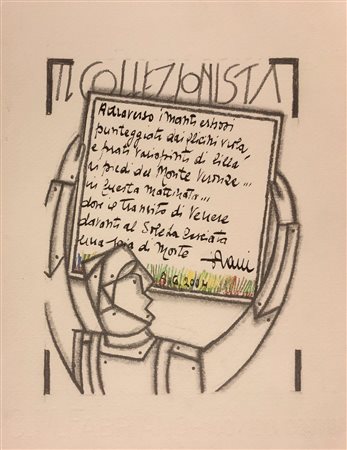 IL COLLEZIONISTA
Attraverso i monti erbosi
punteggiati dai
e prati variopinti di lilla
ai piedi del Monte Veronese...
in questa mattinata...
dove il transito di Venere
davanti al Sole ha lasciato
una scia di Morte
6.2004